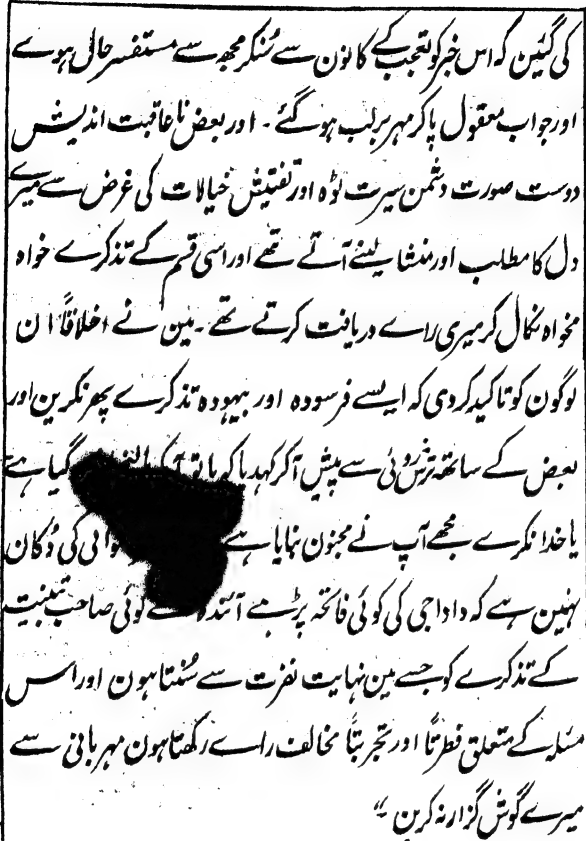 کی گئین کہ اس خبر کو تعجب کے کانون سے سُنکر مجھ سے مستفسر حال ہوے
اور جواب معقول پا کر مہر بر لب ہو گئے ۔ اور بعض نا عاقبت اندیش
دوست صورت دشمن سیرت ٹوہ اور تفتیش خیالات کی غرض سے میرے
دل کا مطلب اور منشا لینے آتے تھے اور اسی قسم کے تذکرے خواہ
مخواہ نکال کر میری راے دریافت کرتے تھے ۔ مین نے اخلاقاً ان
لوگون کو تاکید کر دی کہ ایسے فرسودہ اور بیہودہ تذکرے پھر نکرین اور
بعض کے ساتھ ترشروئی سے پیش آ کر کہدیا کہ یا تو آپکا گیا ہے
یا خدا نکرے مجھے آپ نے مجنون بنایا ہے کی دُکان
نہین ہے کہ دادا جی کی کوئی فاتحہ پڑہے آئندہ کوئی صاحب تبنیت
کے تذکرے کو جسے مین نہایت نفرت سے سُنتا ہون اور اس
مسئلہ کے متعلق فطرتًا اور تجربتًا مخالف راے رکھتا ہون مہربانی سے
میرے گوش گزار نہ کرین ۔"